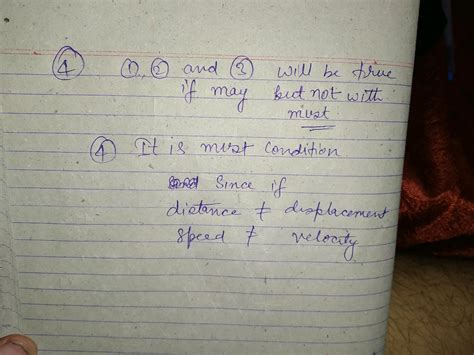 ④ ①, ② and ③ will be true
if may but not with
must
④ It is must condition
Since if
distance ≠ displacement
speed ≠ velocity